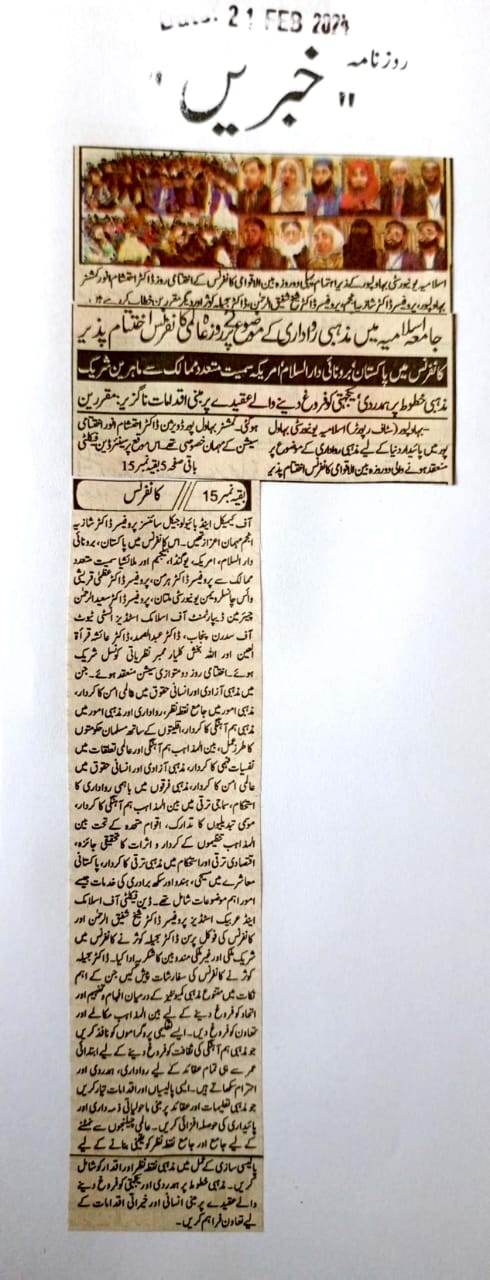 Date: 21 FEB 2024
روزنامہ
"خبریں"
اسلامیہ یونیورسٹی بہاولپور کے زیر اہتمام پہلی دو روزہ بین الاقوامی کانفرنس کے اختتامی روز ڈاکٹر احتشام انور کمشنر
بہاولپور، پروفیسر ڈاکٹر شازیہ انجم، پروفیسر ڈاکٹر شیخ شفیق الرحمن، ڈاکٹر جمیلہ کوثر اور دیگر مقررین خطاب کر رہے ہیں
جامعہ اسلامیہ میں مذہبی رواداری کے موضوع پر 2 روزہ عالمی کانفرنس اختتام پذیر
کانفرنس میں پاکستان، برونائی دار السلام، امریکہ سمیت متعدد ممالک سے ماہرین شریک
مذہبی خطوط پر ہمدردی، یکجہتی کو فروغ دینے والے عقیدے پر مبنی اقدامات ناگزیر: مقررین
بہاولپور (سٹاف رپورٹر) اسلامیہ یونیورسٹی بہاول
پور میں پائیدار دنیا کے لیے مذہبی رواداری کے موضوع پر
منعقد ہونے والی دو روزہ بین الاقوامی کانفرنس اختتام پذیر
ہوگئی۔ کمشنر بہاول پور ڈویژن ڈاکٹر احتشام انور اختتامی
سیشن کے مہمان خصوصی تھے۔ اس موقع پر سینئر ڈین فیکلٹی
باقی صفحہ 5 بقیہ نمبر 15
بقیہ نمبر 15 کانفرنس
آف کیمیکل اینڈ بائیولوجیکل سائنسز پروفیسر ڈاکٹر شازیہ
انجم مہمان اعزاز تھیں۔ اس کانفرنس میں پاکستان، برونائی
دار السلام، امریکہ، یوگنڈا، بیلجیم اور ملائشیا سمیت متعدد
ممالک سے پروفیسر ڈاکٹر ہرمن، پروفیسر ڈاکٹر عظمیٰ قریشی
وائس چانسلر ویمن یونیورسٹی ملتان، پروفیسر ڈاکٹر سعید الرحمن
چیئرمین ڈیپارٹمنٹ آف اسلامک اسٹڈیز انسٹی ٹیوٹ
آف سدرن پنجاب، ڈاکٹر عبدالصمد، ڈاکٹر عائشہ قرأة
العین اور اللہ بخش کلیار ممبر نظریاتی کونسل شریک
ہوئے۔ اختتامی روز دو متوازی سیشن منعقد ہوئے۔ جن
میں مذہبی آزادی اور انسانی حقوق میں عالمی امن کا کردار،
مذہبی امور میں جامع نقطہ نظر، رواداری اور مذہبی امور میں
مذہبی ہم آہنگی کا کردار، اقلیتوں کے ساتھ مسلمان حکومتوں
کا طرز عمل، بین المذاہب ہم آہنگی اور عالمی تعلقات میں
نفسیات فہمی کا کردار، مذہبی آزادی اور انسانی حقوق میں
عالمی امن کا کردار، مذہبی فرقوں میں باہمی رواداری کا
استحکام، سماجی ترقی میں بین المذاہب ہم آہنگی کا کردار،
موسمی تبدیلیوں کا تدارک، اقوام متحدہ کے تحت بین
المذاہب تنظیموں کے کردار و اثرات کا تحقیقی جائزہ،
اقتصادی ترقی اور استحکام میں مذہبی ترقی کا کردار، پاکستانی
معاشرے میں مسیحی، ہندو اور سکھ برادری کی خدمات جیسے
امور اہم موضوعات شامل تھے۔ ڈین فیکلٹی آف اسلامک
اینڈ عریبک اسٹڈیز پروفیسر ڈاکٹر شیخ شفیق الرحمن اور
کانفرنس کی فوکل پرسن ڈاکٹر جمیلہ کوثر نے کانفرنس میں
شریک ملکی اور غیر ملکی مندوبین کا شکریہ ادا کیا۔ ڈاکٹر جمیلہ
کوثر نے کانفرنس کی سفارشات پیش کیں جن کے اہم
نکات میں متنوع مذہبی کمیونٹیز کے درمیان افہام و تفہیم اور
اتحاد کو فروغ دینے کے لیے بین المذاہب مکالمے اور
تعاون کو فروغ دیں۔ ایسے تعلیمی پروگراموں کو نافذ کریں
جو مذہبی ہم آہنگی کی ثقافت کو فروغ دینے کے لیے ابتدائی
عمر سے ہی تمام عقائد کے لیے رواداری، ہمدردی اور
احترام سکھاتے ہیں۔ ایسی پالیسیاں اور اقدامات تیار کریں
جو مذہبی تعلیمات اور عقائد پر مبنی ماحولیاتی ذمہ داری اور
پائیداری کی حوصلہ افزائی کریں۔ عالمی چیلنجوں سے نمٹنے
کے لیے جامع اور جامع نقطہ نظر کو یقینی بنانے کے لیے
پالیسی سازی کے عمل میں مذہبی نقطہ نظر اور اقدار کو شامل
کریں۔ مذہبی خطوط پر ہمدردی اور یکجہتی کو فروغ دینے
والے عقیدے پر مبنی انسانی اور خیراتی اقدامات کے
لیے تعاون فراہم کریں۔